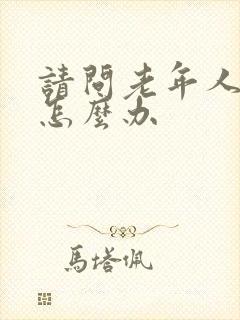 請問老年人
怎麼办
馬塔佩